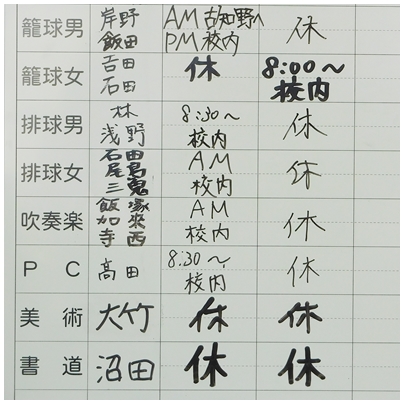 籠球男 岸野 AM 古知野へ 休
飯田 PM 校内
籠球女 吉田 休 8:00〜
石田 校内
排球男 林 8:30〜 休
浅野 校内
排球女 石田 AM 休
尾島 校内
三鬼
吹奏楽 飯塚 AM 休
加来 校内
寺西
PC 高田 8:30〜 休
校内
美術 大竹 休 休
書道 沼田 休 休